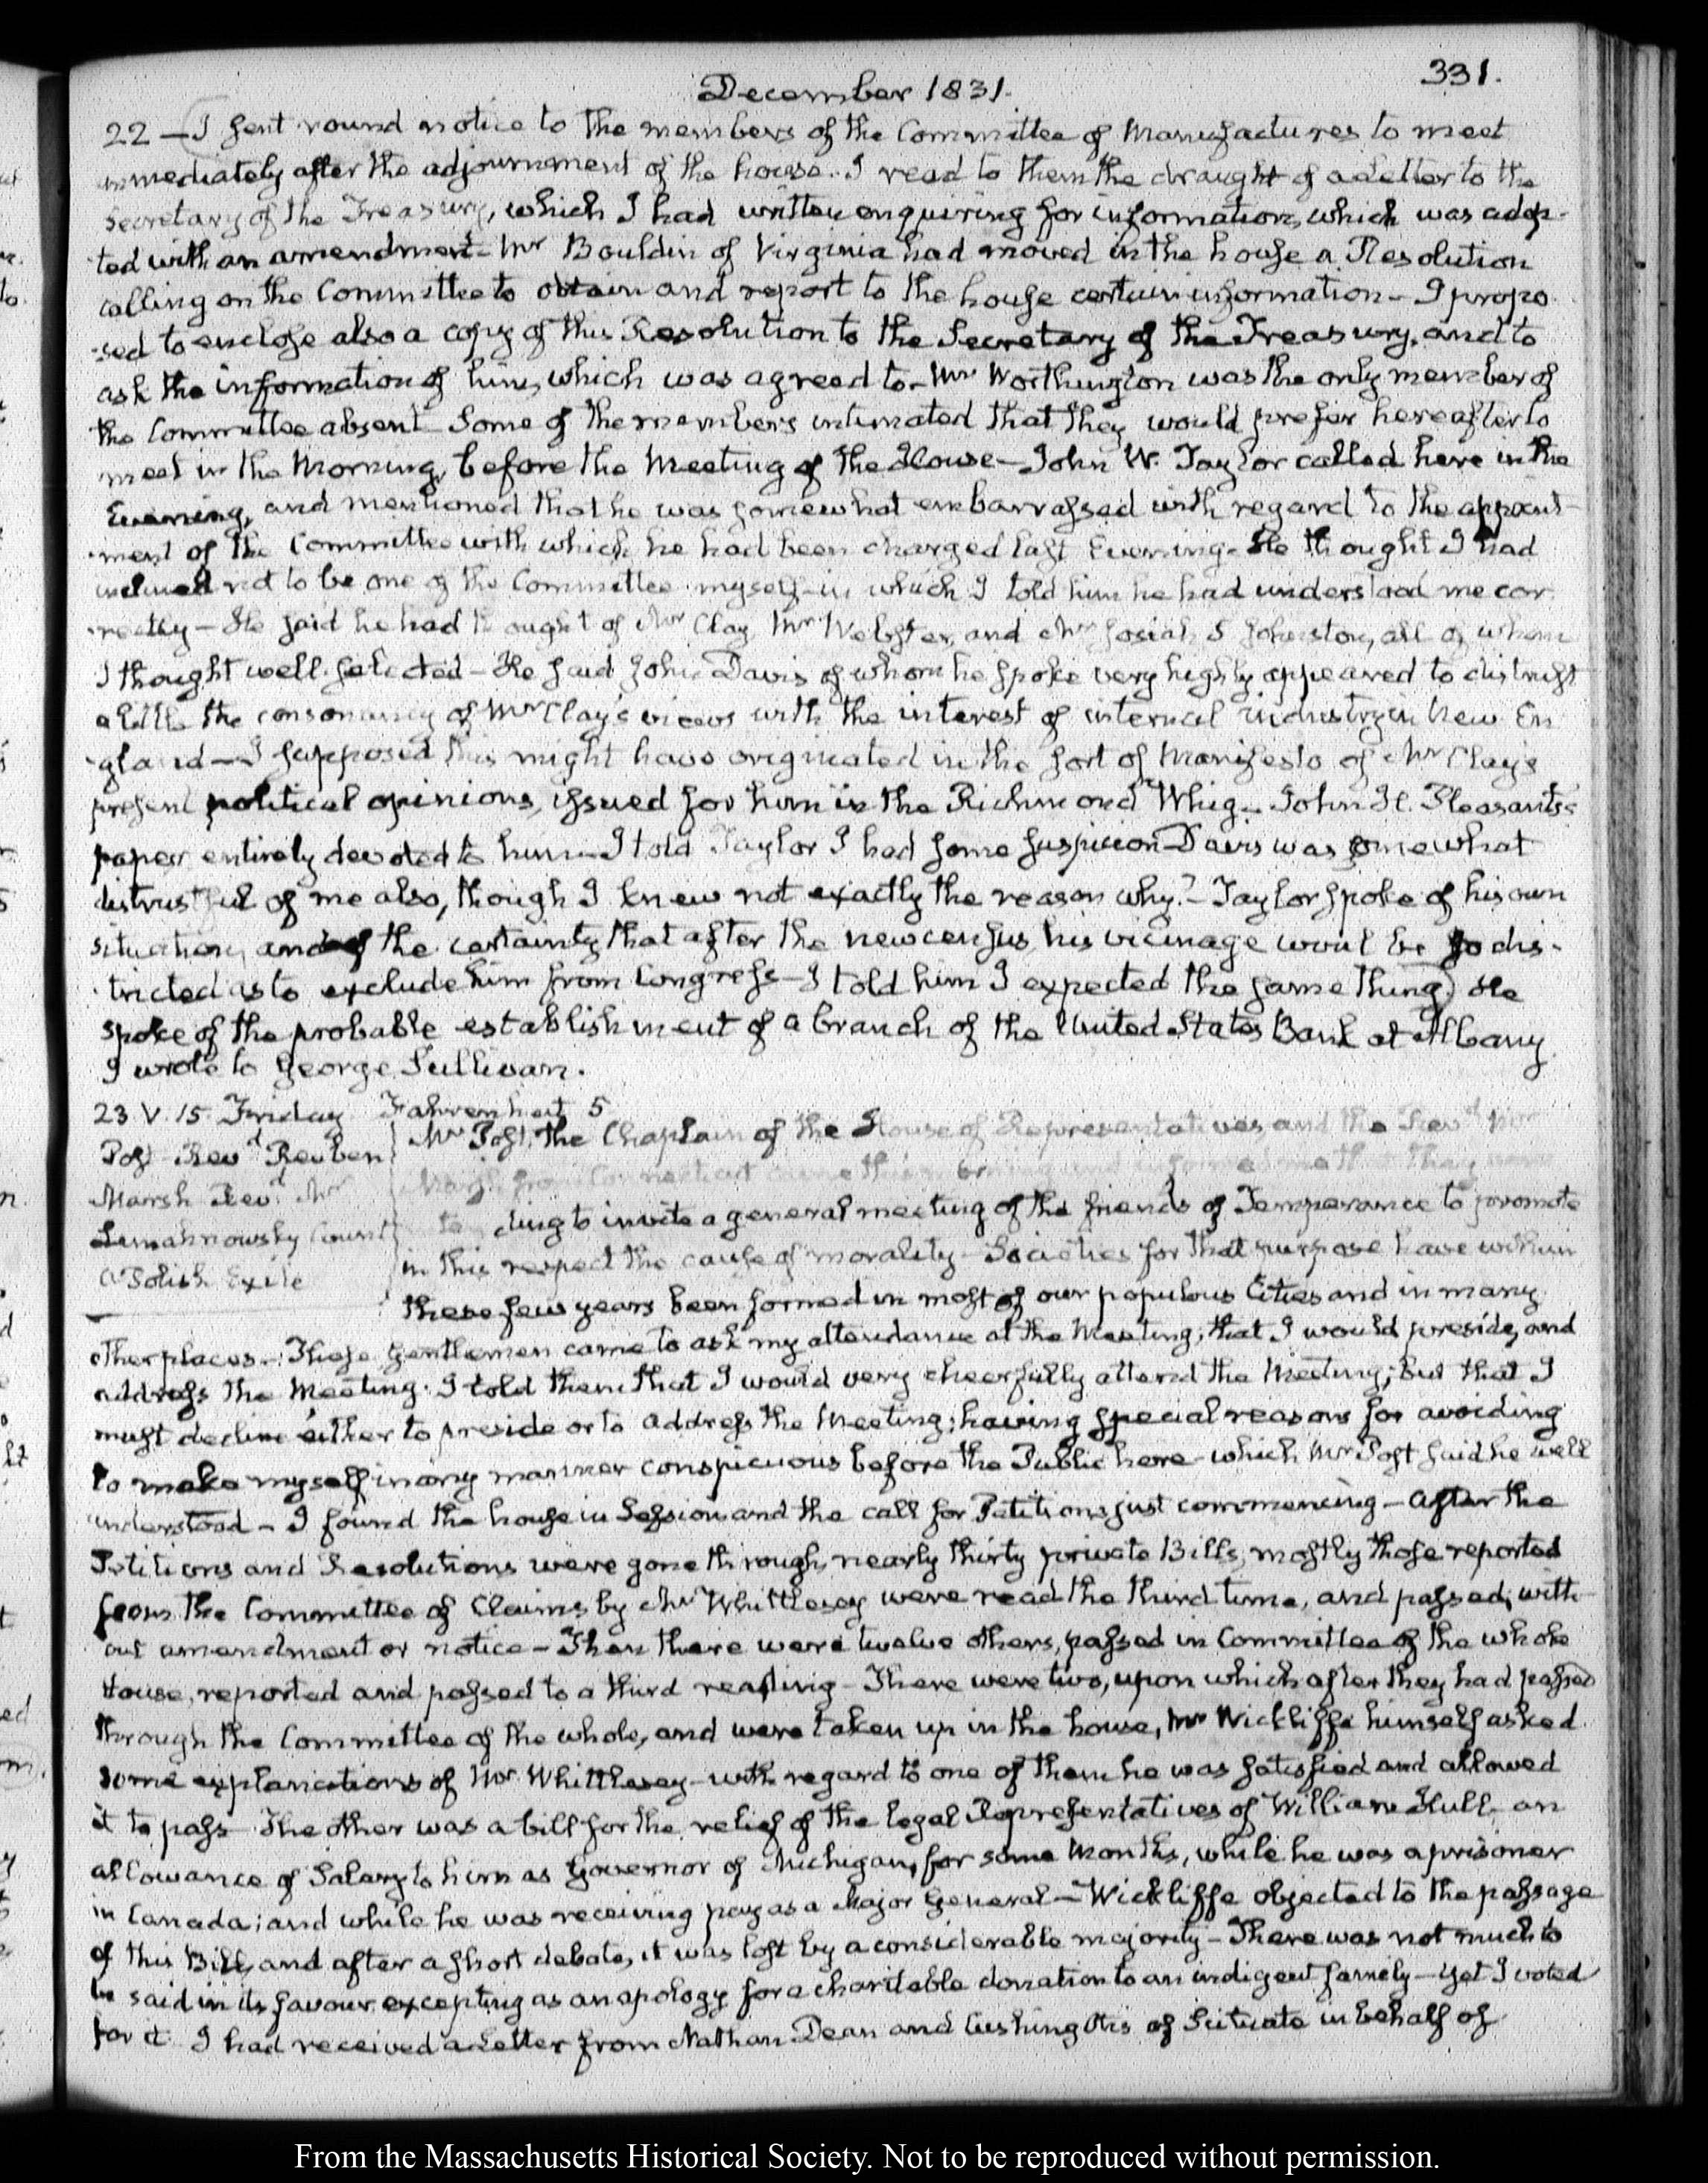 331.
December 1831.
22 — I sent round notice to the members of the Committee of Manufactures to meet
immediately after the adjournment of the house. I read to them the draught of a Letter to the
Secretary of the Treasury, which I had written enquiring for information, which was adop-
ted with an amendment - Mr Bouldin of Virginia had moved in the house a Resolution
calling on the Committee to obtain and report to the house certain information - I propo
sed to enclose also a copy of this Resolution to the Secretary of the Treasury, and to
ask the information of him, which was agreed to - Mr Worthington was the only member of
the Committee absent Some of the members intimated that they would prefer hereafter to
meet in the Morning, before the Meeting of the House - John W. Taylor called here in the
Evening, and mentioned that he was somewhat embarrassed with regard to the appoint-
ment of the Committee with which he had been charged last Evening - He thought I had
inclined not to be one of the Committee myself - in which I told him he had understood me cor
rectly - He said he had thought of Mr Clay, Mr Webster, and Mr Josiah S Johnston, all of whom
I thought well selected - He said John Davis of whom he spoke very highly appeared to distrust
a little the consonancy of Mr Clay's views with the interest of internal industry in New En
gland - I supposed this might have originated in the sort of Manifesto of Mr Clay's
present political opinions, issued for him in the Richmond Whig - John H. Pleasants's
paper, entirely devoted to him - I told Taylor I had some suspicion Davis was somewhat
distrustful of me also, though I knew not exactly the reason why? - Taylor spoke of his own
situation, and of the certainty that after the new census, his vicinage would be so dis-
tricted as to exclude him from Congress - I told him I expected the same thing) He
spoke of the probable establishment of a branch of the United States Bank at Albany
I wrote to George Sullivan.
23. V. 15. Friday Fahrenheit 5
Post Revd Reuben
Marsh Revd Mr
Lemahnowsky Count
a Polish Exile
Mr Post, the Chaplain of the House of Representatives and the Revd Mr
Marsh from Connecticut came this morning and informed me that they were
ding to invite a general meeting of the friends of Temperance to promote
in this respect the cause of morality - Societies for that purpose have within
these few years been formed in most of our populous Cities and in many
other places - These Gentlemen came to ask my attendance at the Meeting; that I would preside, and
address the Meeting. I told them that I would very cheerfully attend the Meeting; but that I
must decline either to preside or to address the Meeting; having special reasons for avoiding
to make myself in any manner conspicuous before the Public here - which Mr Post said he well
understood - I found the house in Session and the call for Petitions just commencing - After the
Petitions and Resolutions were gone through, nearly thirty private Bills, mostly those reported
from the Committee of Claims by Mr Whittlesey were read the third time, and passed, with-
out amendment or notice - Then there were twelve others, passed in Committee of the whole
House, reported and passed to a third reading - There were two, upon which after they had passed
through the Committee of the whole, and were taken up in the house, Mr Wickliffe himself asked
some explanations of Mr. Whittlesey - with regard to one of them he was satisfied and allowed
it to pass The other was a bill for the relief of the legal Representatives of William Hull - an
allowance of Salary to him as Governor of Michigan, for some Months, while he was a prisoner
in Canada; and while he was receiving pay as a Major General - Wickliffe objected to the passage
of this Bill, and after a short debate, it was lost by a considerable majority - There was not much to
be said in its favour, excepting as an apology for a charitable donation to an indigent family - yet I voted
for it I had received a Letter from Nathan Dean and Cushing Otis of Scituate in behalf of
From the Massachusetts Historical Society. Not to be reproduced without permission.